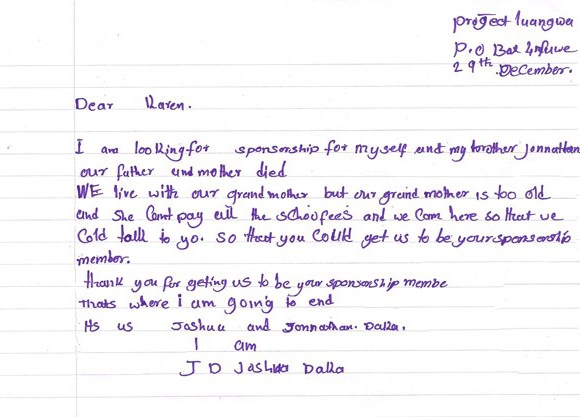 project luangwa
P.O Box Mfuwe
29th December.
Dear Karen.
I am looking for sponsorship for myself and my brother Jonnathan
our father and mother died
WE live with our grandmother but our grand mother is too old
and she Cant pay all the schoofees and we Cam here so that we
Cold talk to yo. so that you Could get us to be your sponsership
member.
thank you for geting us to be your sponsorship membe
thats where i am going to end
Its us Joshua and Jonnathan. Dalla.
I am
J D Joshua Dalla